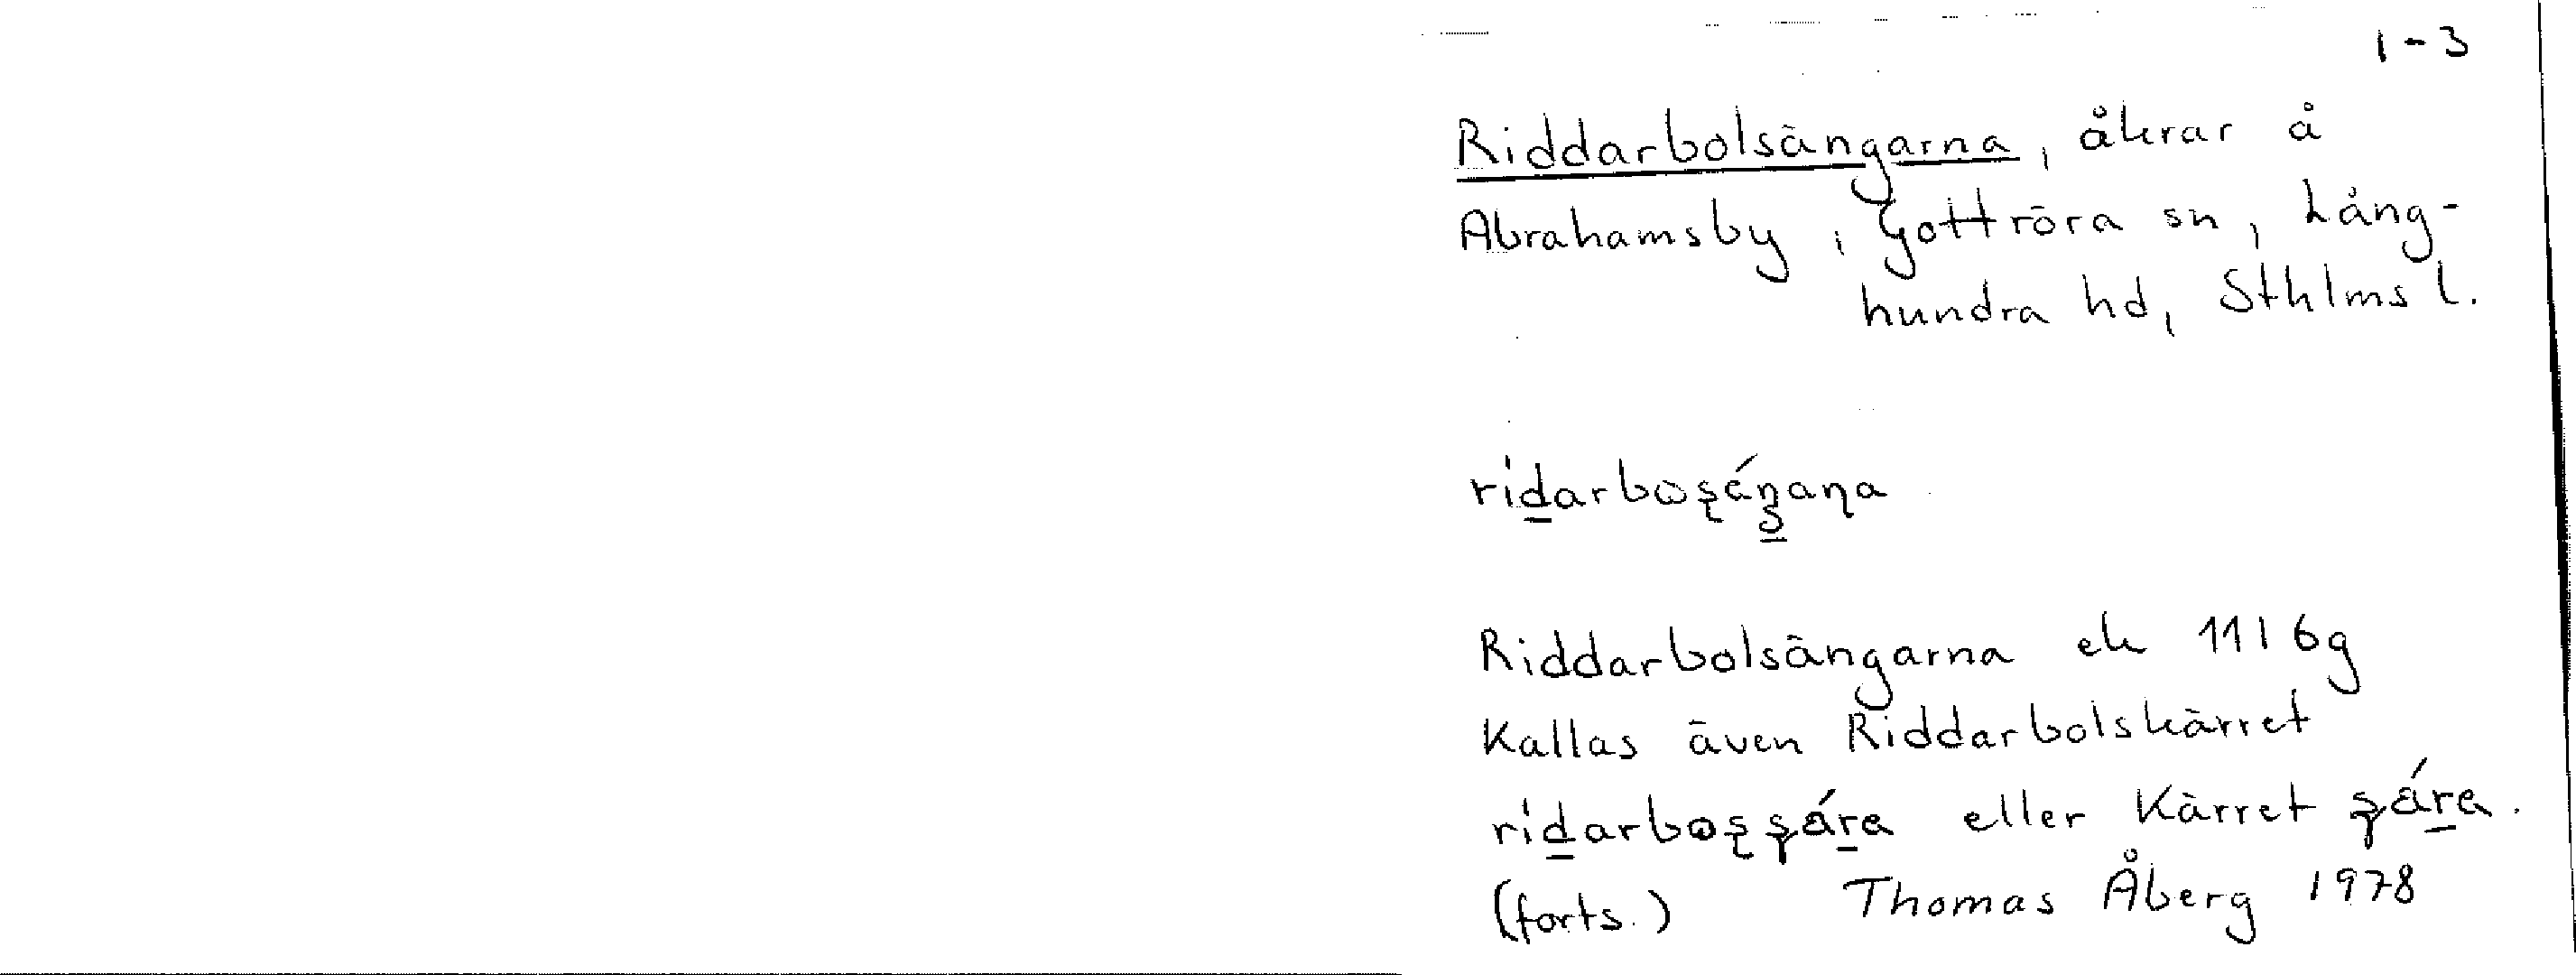 1-3
Riddarbolsängarna, åkrar å
Abrahamsby, Gottröra sn, Lång-
hundra hd, Sthlms l.
Riddarbolsängarna ek 11I6g
Kallas även Riddarbolskärret
eller Kärret
(forts.) Thomas Åberg 1978